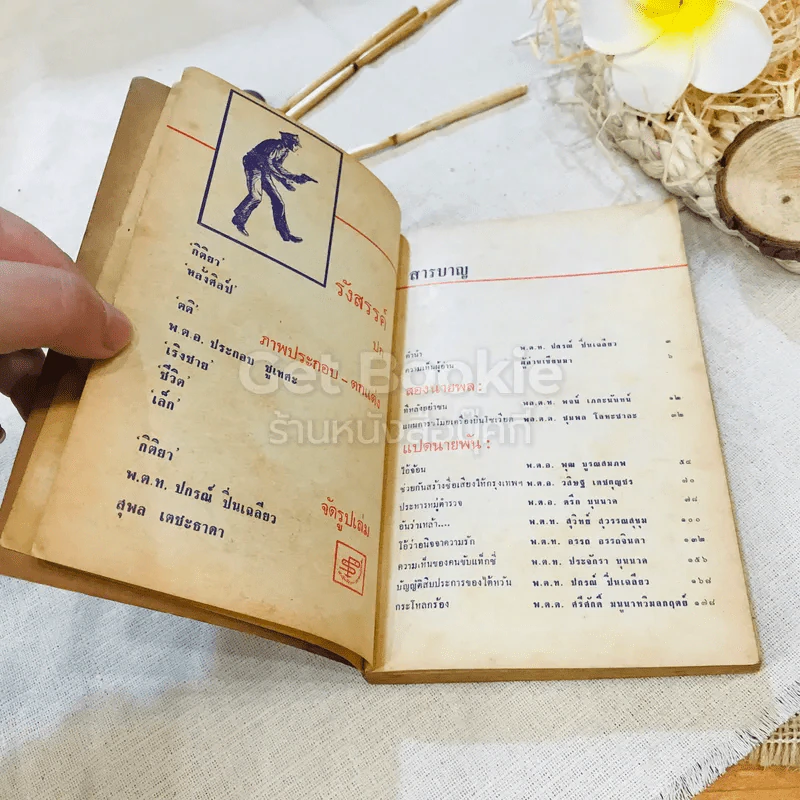 รังสรรค์
ปก
'กิติยา'
'หลังศิลป์'
ภาพประกอบ - ตกแต่ง
'คติ'
พ.ต.อ. ประกอบ ชูเทศะ
'เริงชาย'
'ชีวิต'
'เล็ก'
จัดรูปเล่ม
'กิติยา'
พ.ต.ท. ปกรณ์ ปิ่นเฉลียว
สุพล เตชะธาดา
สารบาญ
คำนำ พ.ต.ท. ปกรณ์ ปิ่นเฉลียว ๓
ความเห็นผู้อ่าน ผู้อ่านเขียนมา ๖
สองนายพล :
ทีหลังอย่าซน พล.ต.ท. พจน์ เภกะนันทน์ ๑๒
แผนการขโมยเครื่องบินโซเวียต พล.ต.ต. ชุมพล โลหะชาละ ๓๒
แปดนายพัน :
ไอ้จ้อน พ.ต.อ. พุฒ บูรณสมภพ ๕๔
ช่วยกันสร้างชื่อเสียงให้กรุงเทพฯ พ.ต.อ. วสิษฐ เดชกุญชร ๗๐
ประหารหมู่ตำรวจ พ.ต.อ. ตรึก บุนนาค ๗๘
อันว่าเหล้า.... พ.ต.ท. สุวิทย์ สุวรรณสขุม ๑๐๐
ไอ้ว่ายนิจจาความรัก พ.ต.ท. อรรถ อรรถจินดา ๑๓๒
ความเห็นของคนขับแท็กซี่ พ.ต.ท. ประจักรา บุนนาค ๑๕๖
บัญญัติสิบประการของไต้หวัน พ.ต.ท. ปกรณ์ ปิ่นเฉลียว ๑๖๘
กระโหลกร้อง พ.ต.ต. ศรีศักดิ์ มนูนาทวิมลกฤตย์ ๑๗๘
Get Bookie
ร้านหนังสือบุ๊คกี่